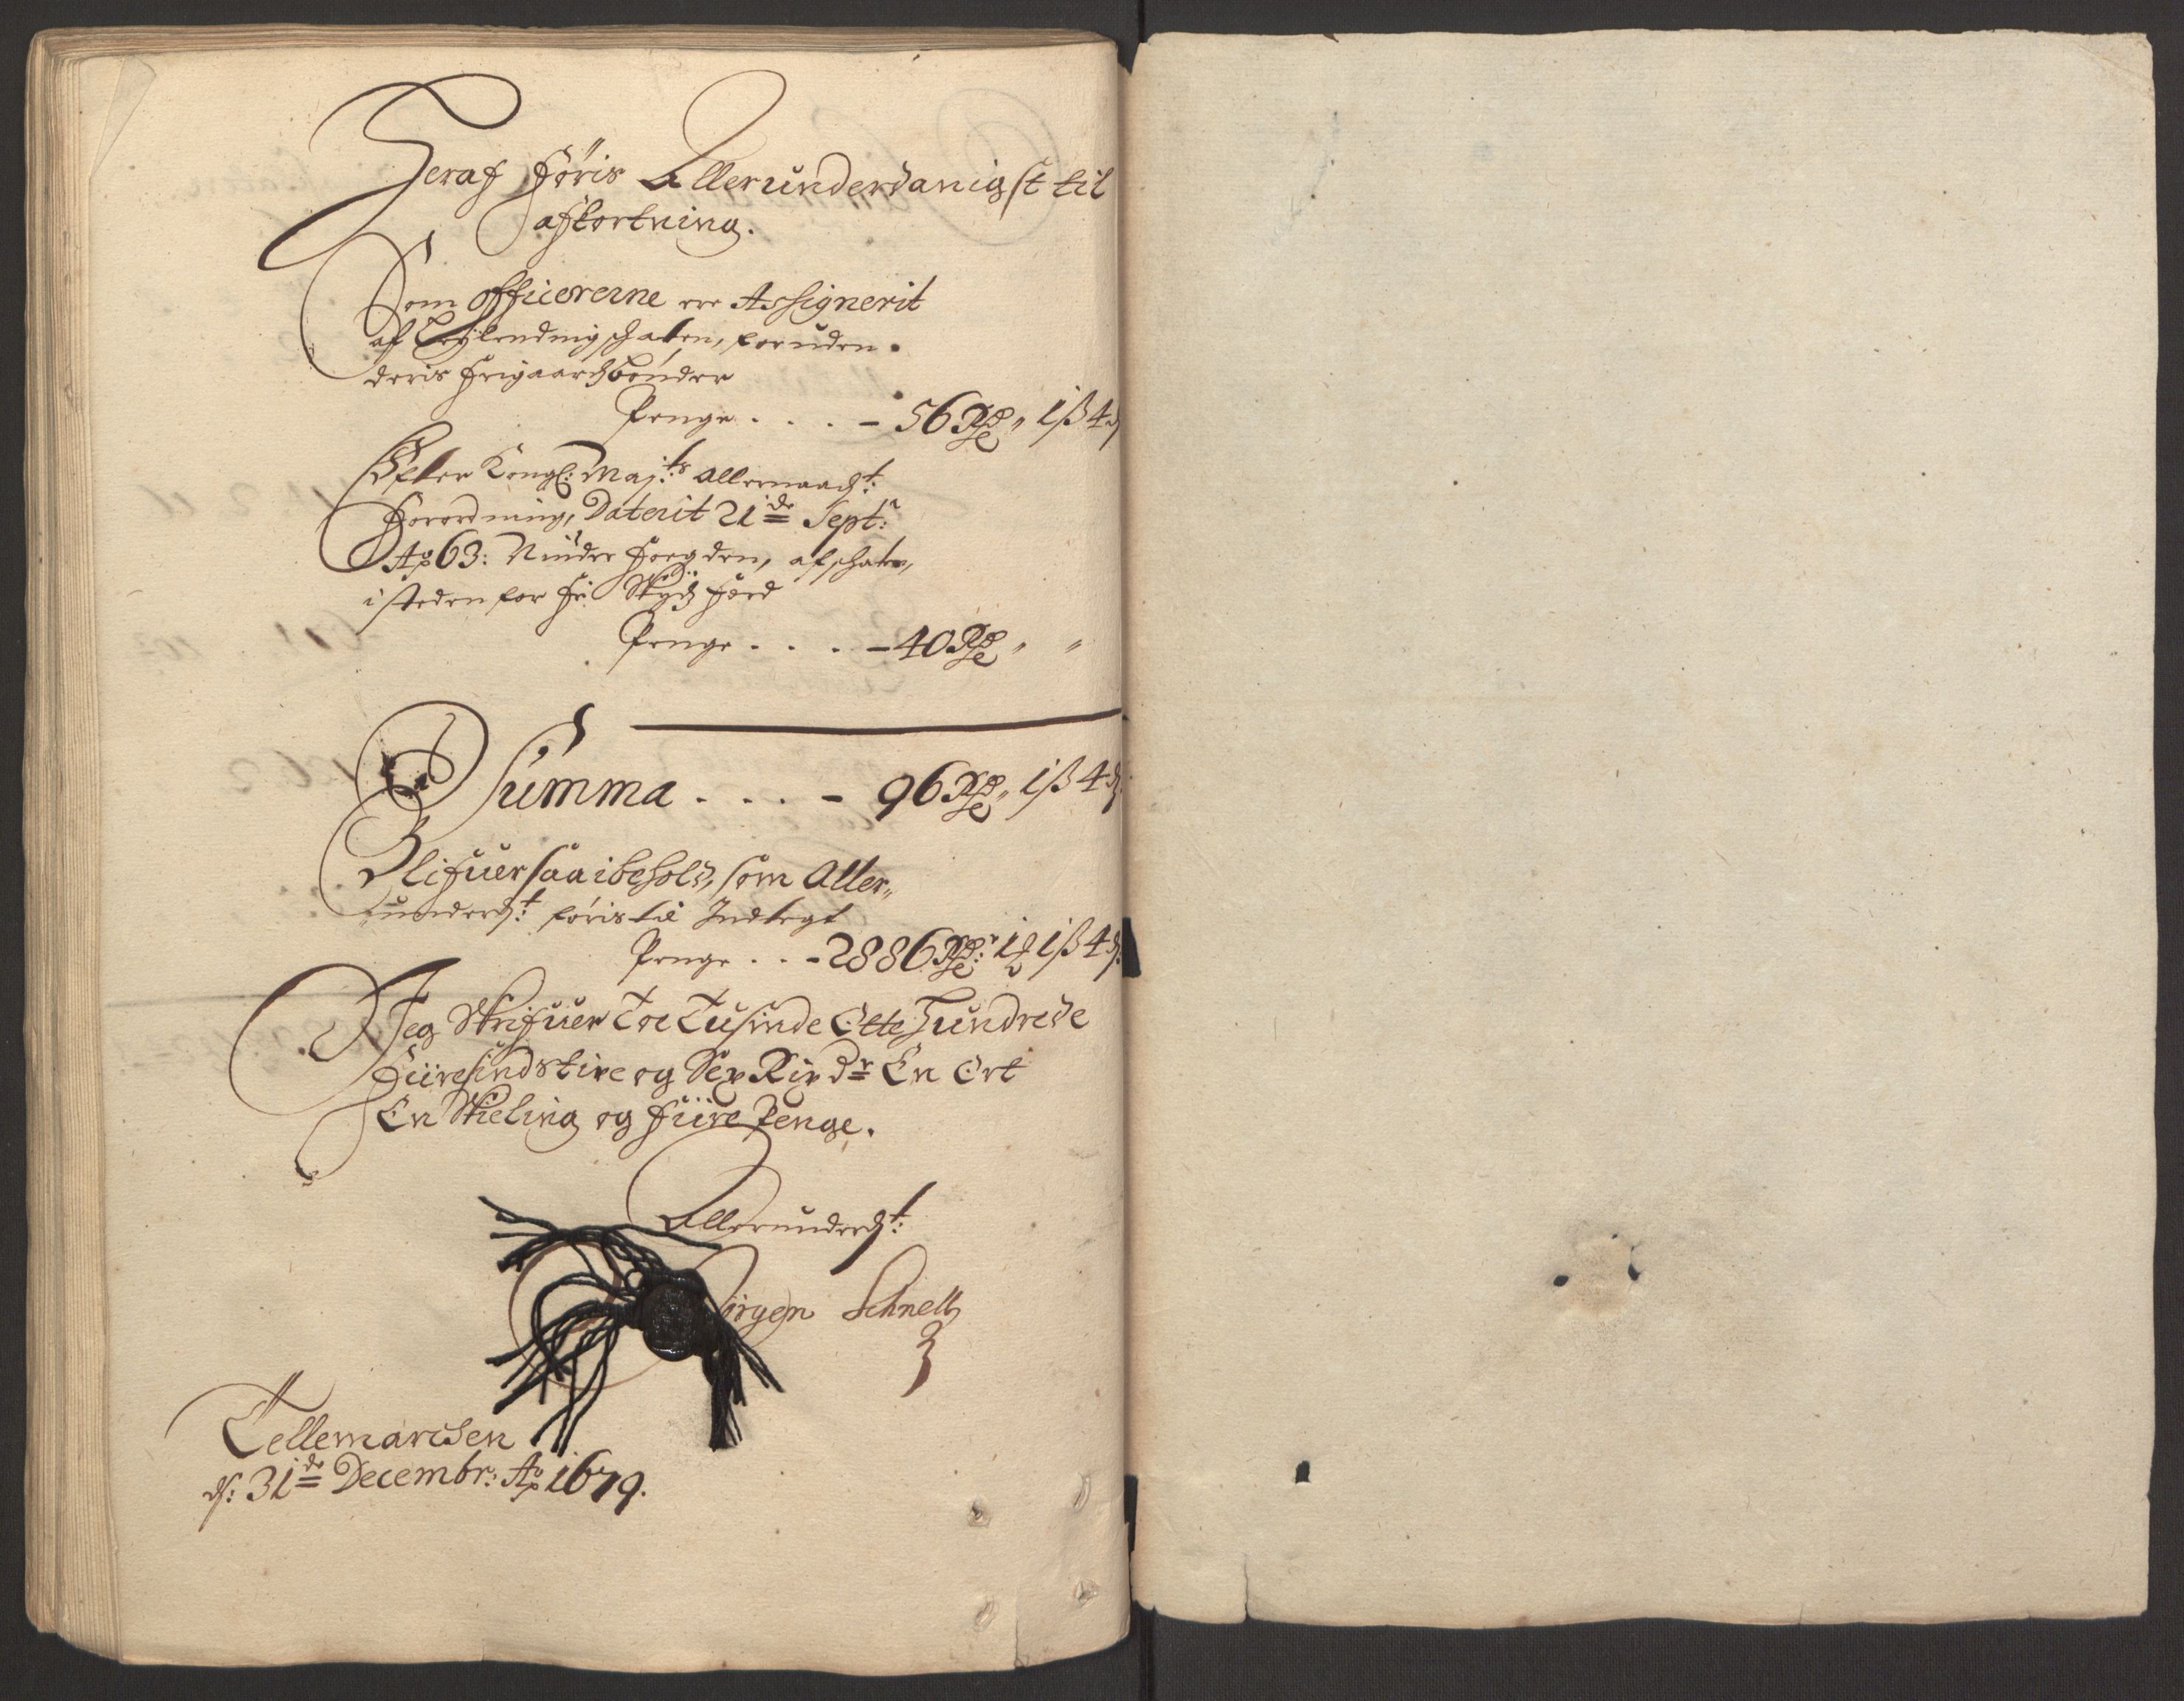 Heraf føris Allerunderdanigst til
afkortning.
Som officererne ere Assignerit
af Leylendingschaten, foruden
deris frigaardsbønder
Penge . . . - 56 Rdr " 1 ß 4 d
Efter Kongl: Maj:ts allernaadst:
forordning, Daterit 21de Septr:
Ao 63: Nÿder foegden, af schaten,
i steden for fri Skydsferd
Penge . . . - 40 Rdr " "
Summa . . . - 96 Rdr " 1 ß 4 d
Blifuer saa i behold, som Aller-
underdst: føris til Indtegt
Penge . . - 2886 Rdr: 1 ort 1 ß 4 d:
Jeg Skrifuer Toe Tusinde Otte Hundrede
Fiiresindstive og Sex Rixdr En Ort
En Skieling og fiire Penge.
Allerunderdst:
Jörgen Schnell
Tellemarchen
d: 31de Decembr: Ao 1679.